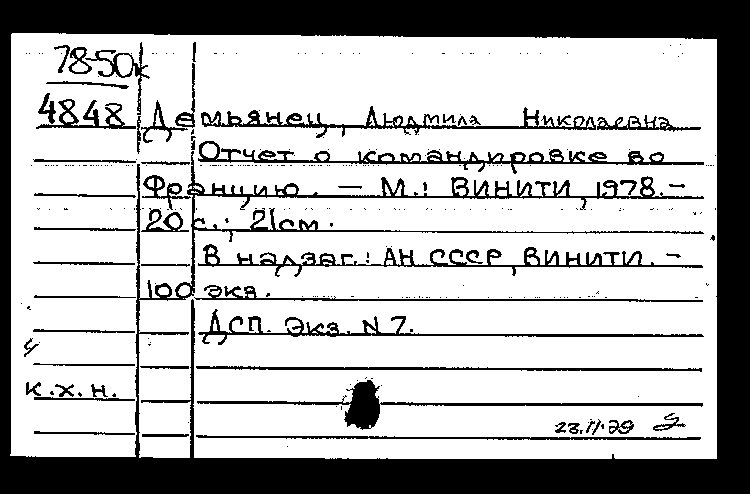 78-50к
4848 Демьянец, Людмила Николаевна
Отчет о командировке во
Францию. — М.: ВИНИТИ, 1978.-
20 с.; 21см.
В надзаг.: АН СССР, ВИНИТИ. -
100 экз.
ДСП. Экз. N 7.
к.х.н.